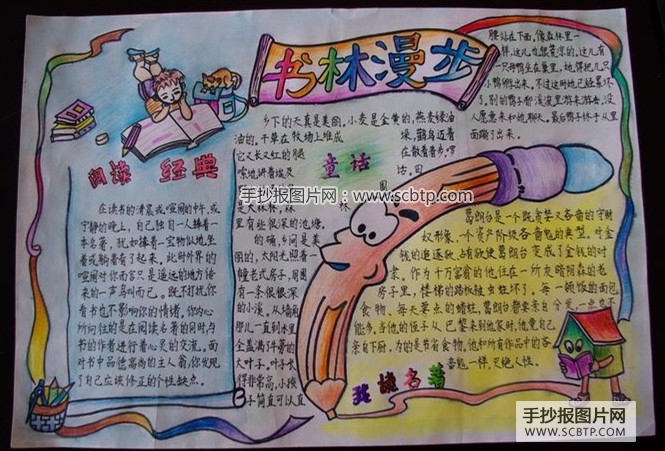 书林漫步
阅读 经典
在读书的清晨或喧闹的中午,或
宁静的晚上,自己独自一人捧着一
本名著,犹如捧着一宝物似地坐
着或躺着看了起来。此时外界的
喧闹对你而言只是遥远的地方传
来的一声鸟叫而已。既不打扰你
看书也不影响你的情绪,你为心
所向往的是在阅读名著的同时,与
书的作者进行着心灵的交流。面
对书中品德高尚的主人翁,你发现
了自己应该修正的个性缺点。
童话
乡下的天真是美丽。小麦是金黄的,燕麦绿油
油的。干草在牧场上堆成垛,鹳鸟迈着
它又长又红的腿在散着步,啰
嗦地讲着埃及话。田
是大森林,森林
里有些很深的池塘。
的确,乡间是美
丽的,太阳光照着一
幢老式房子,周围
有一条很很深
的小溪。从墙角
那儿一直到水里
全盖满了牛蒡的
大叶子。叶子长
得非常高,小孩
子简直可以直
腰站在下面。像森林里一
样,这儿也很荒凉的。这儿有
一只母鸭坐在窠里,她得把几只
小鸭孵出来。不过这时她已经累坏
了。别的鸭子都溪流里游来游去,没
人愿意来和她聊天。最后鸭子终于从里
面蹦了出来。
我读名著
葛朗台是一个既贪婪又吝啬的守财
奴形象,一个资产阶级吝啬鬼的典型,对金
钱的追逐欲,占有欲使葛朗台变成了金钱的奴
隶。作为十万富翁的他住在一所灰暗阴森的老
房子里,楼梯的踏板被虫蛀坏了。每一顿饭的面包
食物,每天要点的蜡蛀,葛朗台都要亲自分发,一点也不
能多。当他的侄子从巴黎来到他家时,他竟自己
亲自下厨,为的是节省食物,他和所有作品中的吝
啬鬼一样,灭绝人性。
手抄报图片网:www.scbtp.com
手抄报图片网
WWW.SCBTP.COM